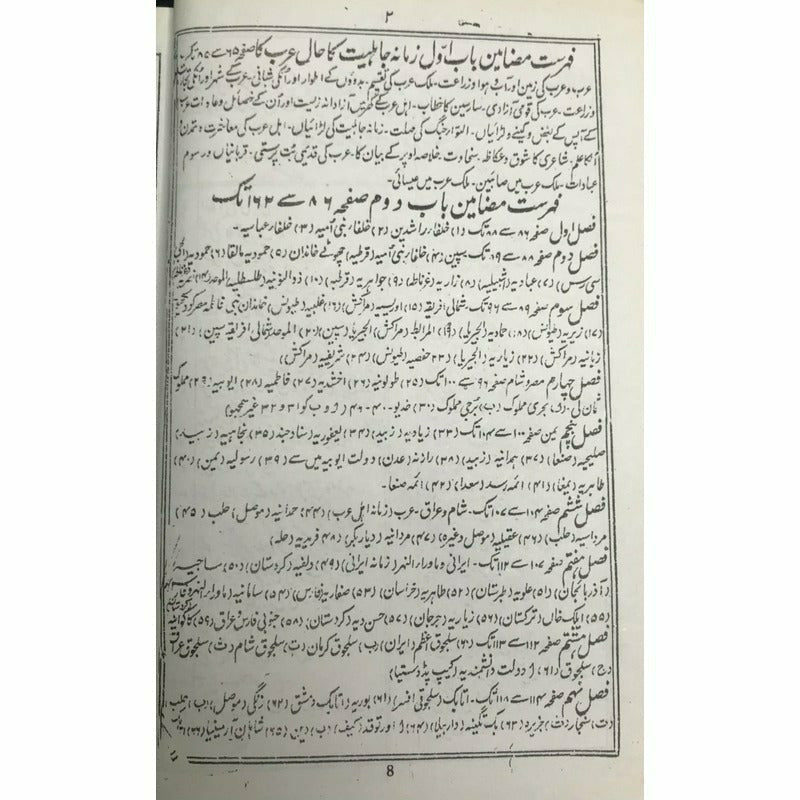 ۲
فہرست مضامین باب اوّل زمانہ جاہلیت کا حال عرب کا صفحہ ۶۵ سے ۸۵ تک
عرب و عرب کی زمین اور آب و ہوا و زراعت۔ ملک عرب کی تقسیم۔ بدوؤں کے اطوار اور انکی شبانی۔ عرب کے شہر اور انکی تجارت
و زراعت۔ عرب کی قومی آزادی۔ سارسین کا خطاب۔ اہل عرب کے آزادانہ زیست اور اُن کے خصائل و عادات عرب
کے آپس کے بغض و کینے و لڑائیاں۔ التواء جنگ کی مہلت۔ زمانہ جاہلیت کی لڑائیاں۔ اہل عرب کی معاشرت و تمدن و
اُنکا علم۔ شاعری کا شوق و عکاظہ۔ سخاوت۔ خلاصہ اوپر کے بیان کا۔ عرب کی قدیمی بُت پرستی۔ قربانیاں و رسوم
عبادات۔ ملک عرب میں صائبین۔ ملک عرب میں عیسائی۔
فہرست مضامین باب دوم صفحہ ۸۶ سے ۱۶۲ تک
فصل اول صفحہ ۸۶ سے ۸۸ تک (۱) خلفاء راشدین (۲) خلفاء بنی اُمیہ (۳) خلفاء عباسیہ۔
فصل دوم صفحہ ۸۸ سے ۸۹ تک سپین (۴) خلفاء بنی اُمیہ (قرطبہ) چھوٹے خاندان (۵) حمودیہ مالقا (۶) حمودیہ الجی
سی رس (۷) عبادیہ (اشبیلیہ) (۸) زاریہ (غرناطہ) (۹) جواہریہ (قرطبہ) (۱۰) ذوالنونیہ (طلیطلہ)
فصل سوم صفحہ ۸۹ سے ۹۶ تک۔ شمالی افریقہ (۱۵) ادریسیہ (مراکش) (۱۶) غلبیہ (طیونس) خاندان بنی فاطمہ مصر کو دیکھو
(۱۷) زیریہ (طیونس) (۱۸) حمادیہ (الجیریا) (۱۹) المرابط (مراکش) الجیریا (سپین) (۲۰) الموحد شمالی افریقہ سپین (۲۱)
زیانیہ (مراکش) (۲۲) زیاریہ (الجیریا) (۲۳) حفصیہ (طیونس) (۲۴) شریفیہ (مراکش)
فصل چہارم مصر و شام صفحہ ۹۶ سے ۱۰۰ تک (۲۵) طولونیہ (۲۶) اخشدیہ (۲۷) فاطمیہ (۲۸) ایوبیہ (۲۹) مملوک
بحری مملوک (ب) برجی مملوک (۳۰) خدیو۔
فصل پنجم یمن صفحہ ۱۰۰ سے ۱۰۴ تک (۳۳) زیادیہ (زبید) (۳۴) یعفوریہ (صنعا و جند) (۳۵) نجاحیہ (زبید)
صلیحیہ (صنعا) (۳۷) ہمدانیہ (زبید) (۳۸) رازنہ (عدن) دولت ایوبیہ میں سے (۳۹) رسولیہ (یمن) (۴۰)
طاہریہ (یمن) (۴۱) ائمہ رسد (سعدا) (۴۲) ائمہ صنعا۔
فصل ششم صفحہ ۱۰۴ سے ۱۰۷ تک۔ شام و عراق۔ عرب (زمانہ اہل عرب) (۴۴) حمدانیہ (موصل) حلب (۴۵)
مرداسیہ (حلب) (۴۶) عقیلیہ (موصل وغیرہ) (۴۷) مردانیہ (دیاربکر) (۴۸) فریدیہ (حلہ)
فصل ہفتم صفحہ ۱۰۷ سے ۱۱۲ تک۔ ایرانی و ماوراء النہر (زمانہ ایرانی) (۴۹) دلفیہ (کردستان) (۵۰) ساجیہ
(آذربائجان) (۵۱) علویہ (طبرستان) (۵۲) طاہریہ (خراسان) (۵۳) صفاریہ (فارس) (۵۴) سامانیہ (ماوراء النہر و فارس)
(۵۵) ایلک خاں (ترکستان) (۵۶) زیاریہ (جرجان) (۵۷) حسن دیہ (کردستان) (۵۸) جنوبی فارس و عراق (۵۹) کاکوائیہ
فصل ہشتم صفحہ ۱۱۲ سے ۱۱۳ تک (۶۰) سلجوق اعظم (ایران) (ب) سلجوق کرمان (ت) سلجوق شام (ث) سلجوق عراق
(ج) سلجوق (۶۱) دولت دانشمندیہ (کیپ پڈوسیا)
فصل نہم صفحہ ۱۱۴ سے ۱۱۸ تک۔ اتابک (سلجوقی افسر) (۶۱) بوریہ (اتابک دمشق) (۶۲) زنگی (موصل) (ب) حلب
(ت) سنجار (ث) جزیرہ (۶۳) بک تگینہ (اربیلا) (۶۴) اورتوقد (کیف) (ب) (۶۵) شاہان آرمینیا (۶۶)
8